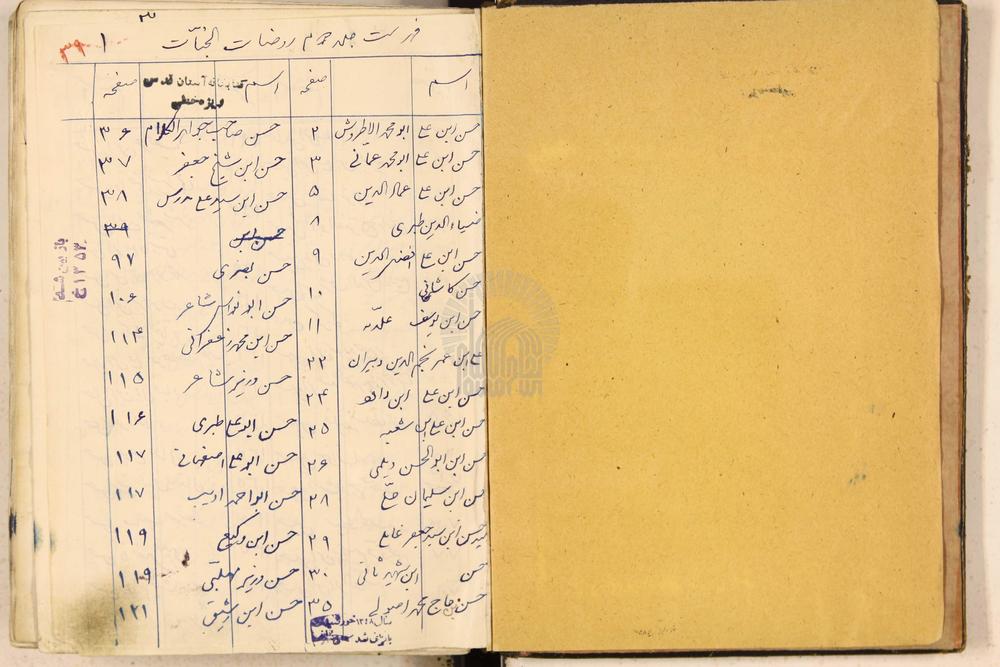 فهرست جلد سوم روضات الجنّات
۱
۳۹
اسم صفحه اسم صفحه
کتابخانه آستان قدس
حسن ابن علی ابو محمد الاطروش ۲ حسن صاحب جواهر الکلام ۳۶
حسن ابن علی ابو محمد عمانی ۳ حسن ابن شیخ جعفر ۳۷
حسن ابن علی عماد الدین ۵ حسن ابن سید علی مدرس ۳۸
ضیاء الدین طبری ۸ حسن ابن ۳۹
حسن ابن علی افضل الدین ۹ حسن بصری ۹۷
حسن کاشانی ۱۰ حسن ابو نواس شاعر ۱۰۶
حسن ابن یوسف علامه ۱۱ حسن ابن محمد زعفرانی ۱۱۴
علی ابن عمر نجم الدین دبیران ۲۲ حسن وزیر شاعر ۱۱۵
حسن ابن علی ابن داود ۲۴ حسن ابو علی طبری ۱۱۶
حسن ابن علی ابن شعبه ۲۵ حسن ابو علی اصفهانی ۱۱۷
حسن ابن ابو الحسن دیلمی ۲۶ حسن ابو احمد ادیب ۱۱۷
حسن ابن سلیمان حلی ۲۸ حسن ابن وکیع ۱۱۹
سید حسن ابن سید جعفر عاملی ۲۹ حسن وزیر مهلبی ۱۱۹
حسن ابن شهید ثانی ۳۰ حسن ابن رشیق ۱۲۱
حسن بن حاج محمد اصولی ۳۵
بازبین شد
۱۳۵۳
سال ۱۳۴۸
بازبینی شد